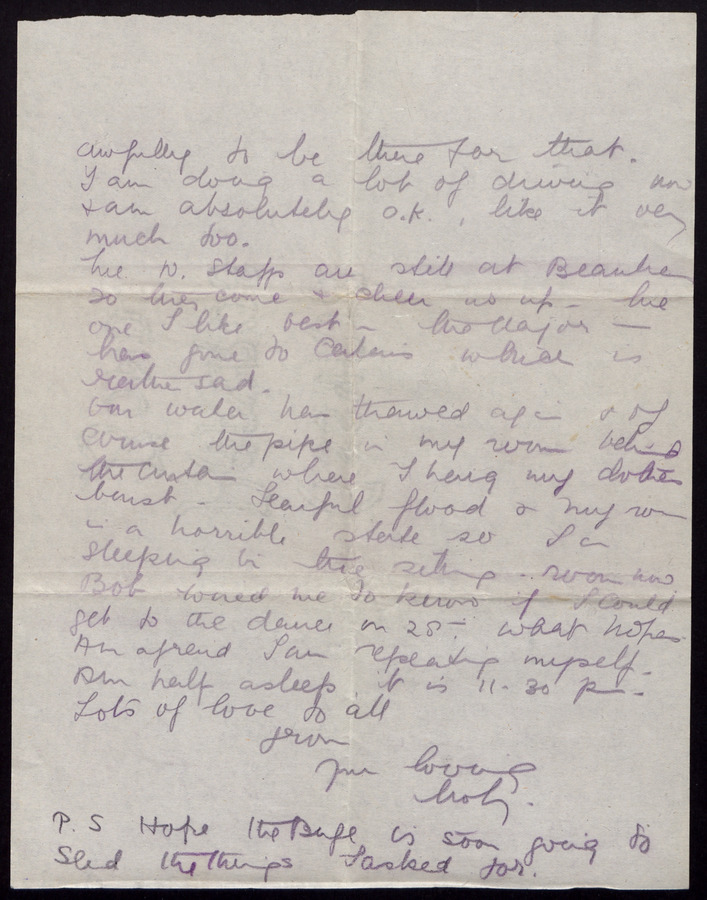 awfully to be there for that.
I am doing a lot of driving now
& am absolutely o.k., like it very
much too.
The N. Staffs are still at
so they come & cheer us up - the
one I like best - the Major -
has gone to which is
rather sad.
Our water has thawed again & of
course the pipe in my room behind
the curtain where I hang my clothes
burst - Fearful flood & my room
in a horrible state so I am
sleeping in the sitting-room now
Bob wired me to know if I could
get to the dance on 28th what hopes
Am afraid I am repeating myself -
Am half asleep it is 11-30 pm -
Lots of love to all
from
Your loving
P.S Hope the is soon going to
send the things I asked for.